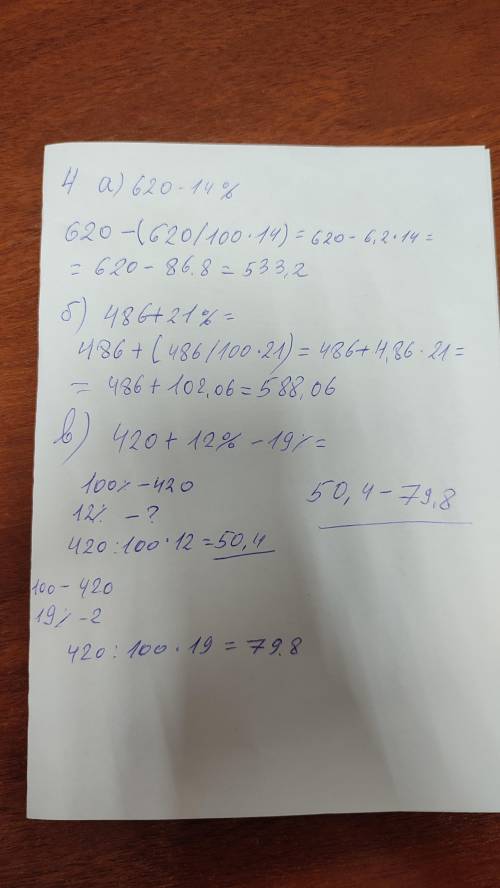 4 а) 620 - 14%
620 - (620/100·14) = 620 - 6,2·14 =
= 620 - 86.8 = 533,2
б) 486 + 21% =
486 + (486/100·21) = 486 + 4,86·21 =
= 486 + 102,06 = 588,06
в) 420 + 12% - 19% =
100% - 420
12% - ?
420 : 100 · 12 = 50,4
50,4 - 79,8
100 - 420
19% - ?
420 : 100 · 19 = 79.8